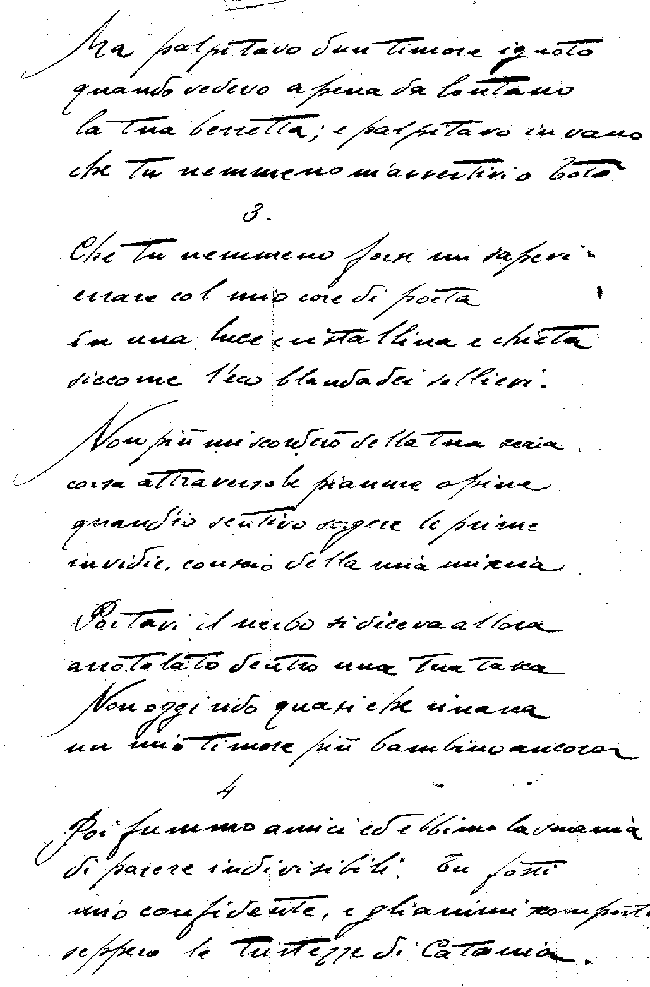 Ma palpitavo d'un timore ignoto
quando vedevo apena da lontano
la tua berretta; e palpitavo invano
che tu nemmeno m'avvertivi o Totò
3.
Che tu nemmeno forse mi sapevi
errare col mio core di poeta
in una luce cristallina e chieta
siccome l'eco blanda dei sollievi.
Non più mi scorderò della tua seria
corsa attraverso le pianure opine
quand'io sentivo sorgere le prime
invidie, conscio della mia miseria
Portavi il nerbo si diceva allora
arrotolato dentro una tua tasca
Non oggi rido quasi che rinasca
un mio timore più bambino ancora
4
Poi fummo amici ed ebbimo la smania
di parere indivisibili. Tu fosti
mio confidente, e gli animi
seppero le tristezze di Catania.